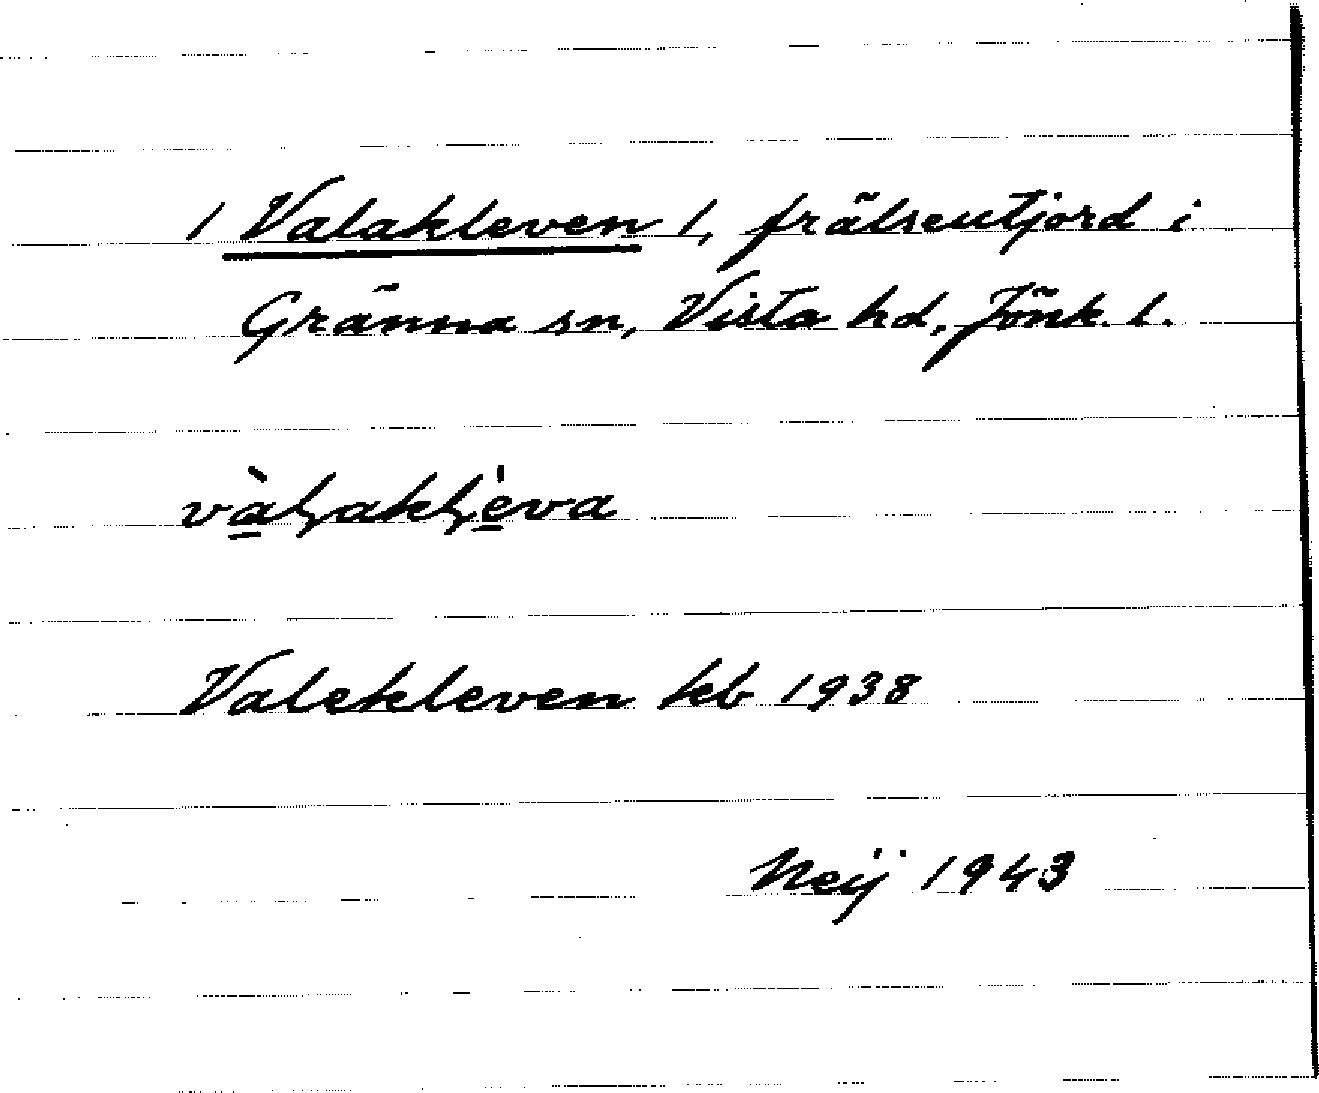 / Valakleven /, frälseutjord i
Gränna sn, Vista hd, Jönk. l.
và̱ⱡakⱡe̱̍va
Valekleven kb 1938
Neij 1943